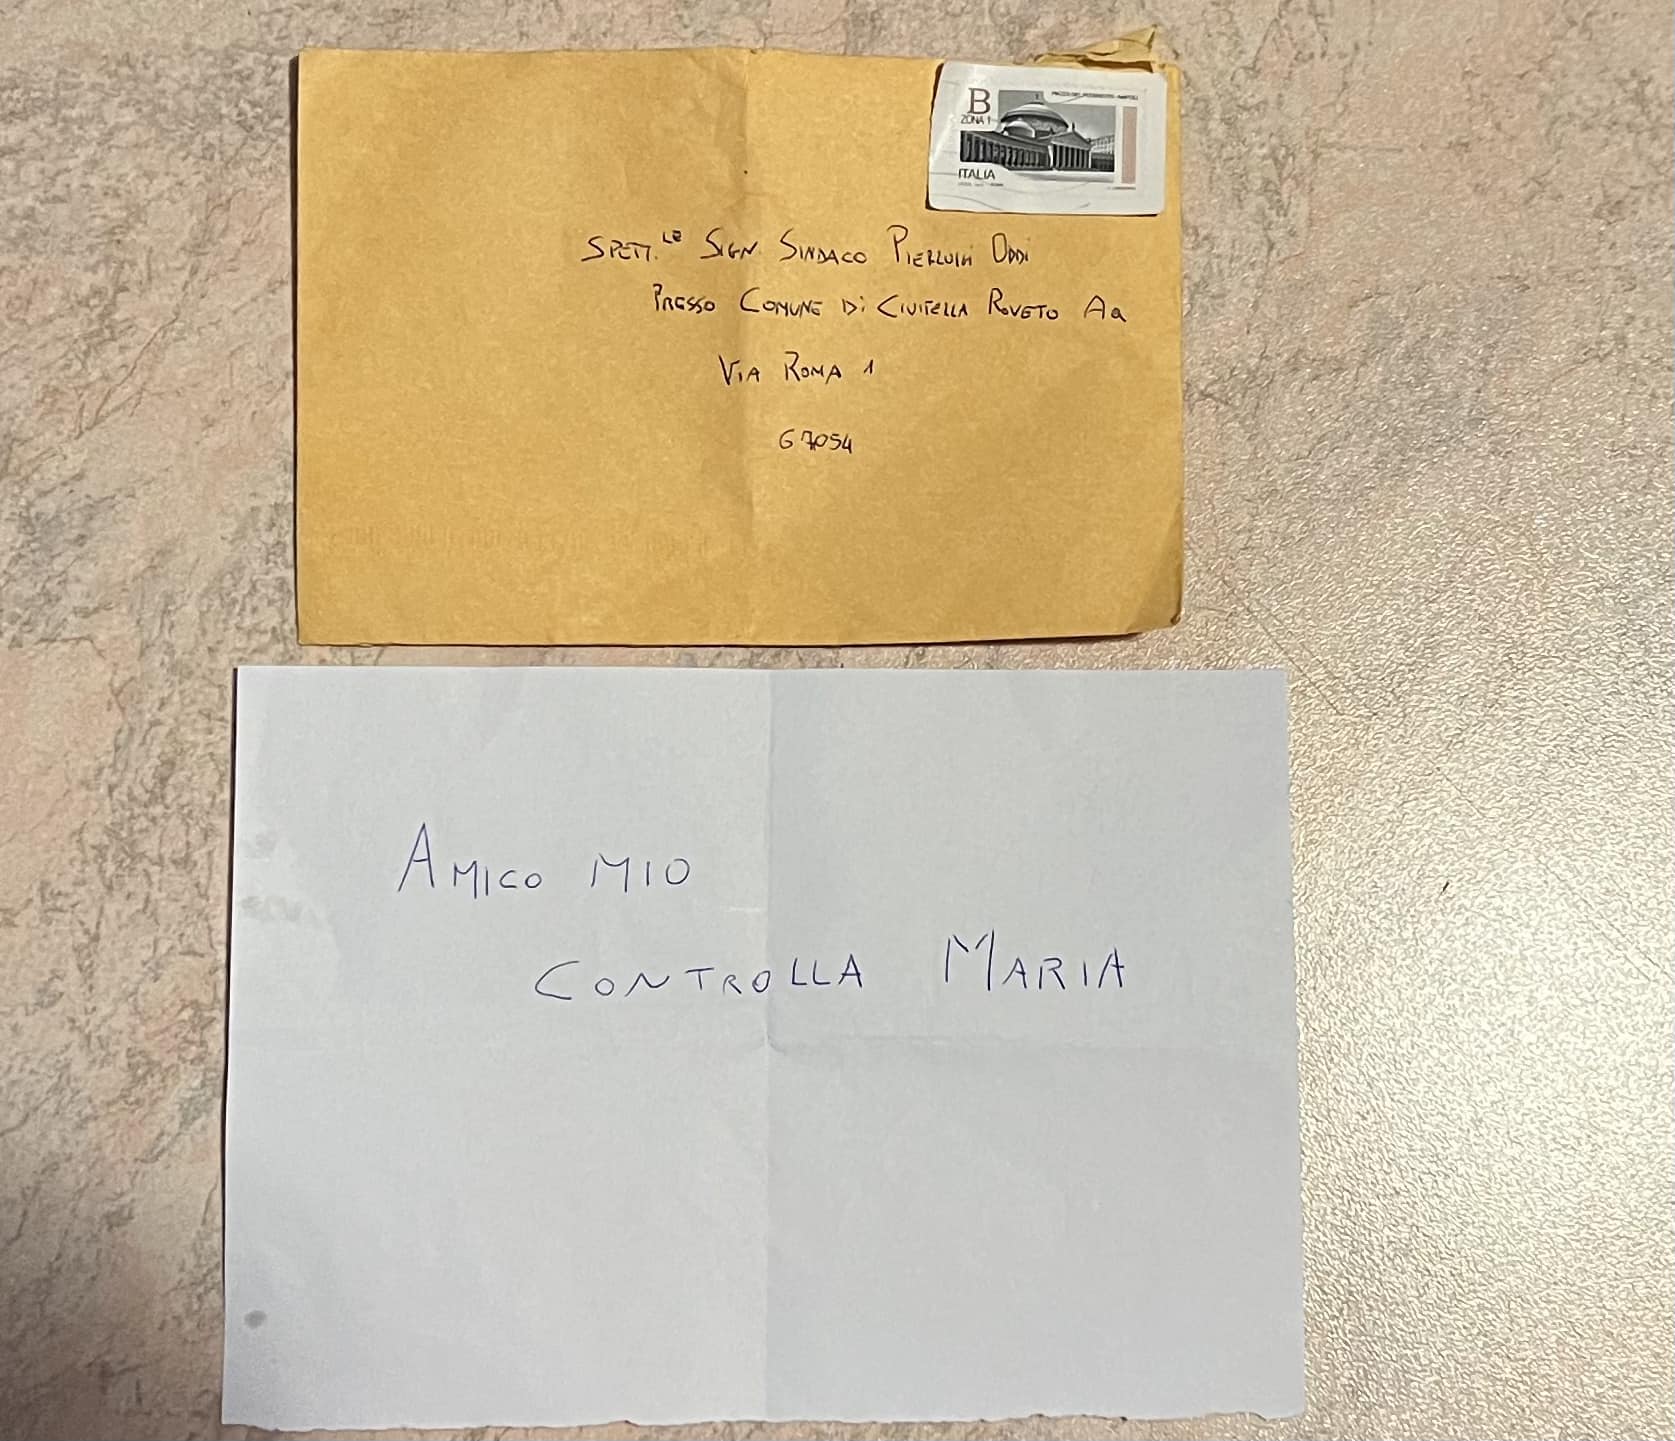 B
ZONA 1
PIAZZA DEL PLEBISCITO - NAPOLI
ITALIA
SPETT.LE SIGN. SINDACO PIERLUIGI ODDI
PRESSO COMUNE Di CIVITELLA ROVETO AQ
VIA ROMA 1
67054
AMICO MIO
CONTROLLA MARIA